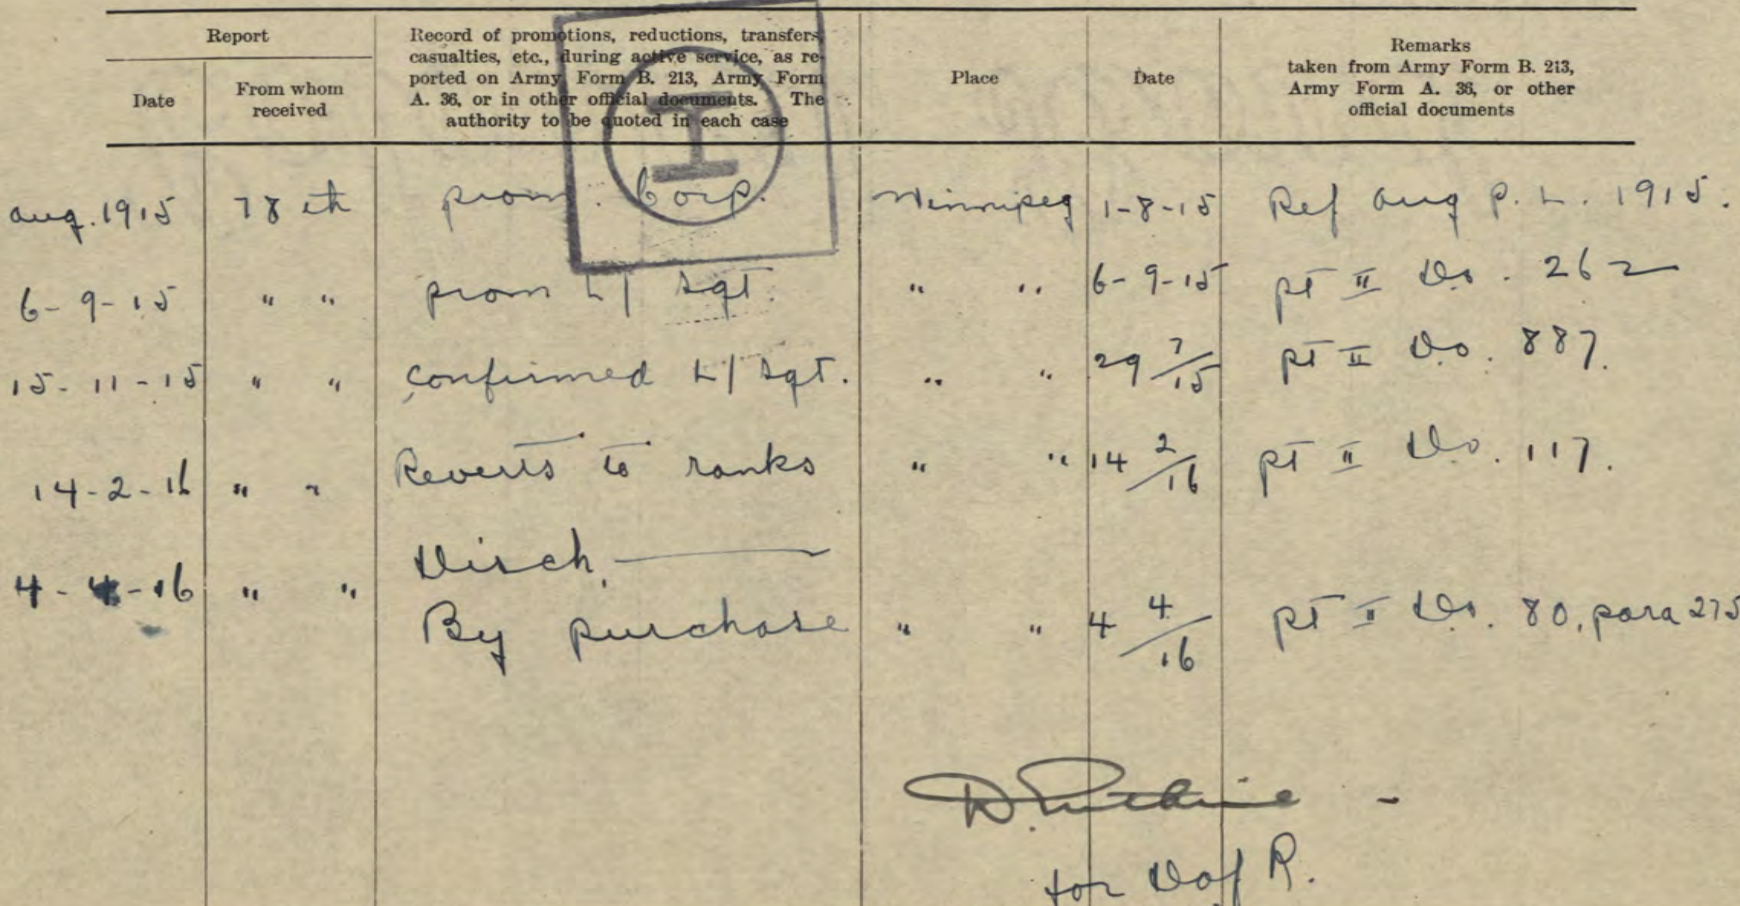 Report
Date
From whom
received
Record of promotions, reductions, transfers,
casualties, etc., during active service, as re-
ported on Army Form B. 213, Army Form
A. 36, or in other official documents. The
authority to be quoted in each case
Place
Date
Remarks
taken from Army Form B. 213,
Army Form A. 36, or other
official documents
I
Aug. 1915 78 th prom. Corp. Winnipeg 1-8-15 Ref Aug P. L. 1915.
6-9-15 " " prom L/Sgt. " " 6-9-15 pt II Do. 262
15-11-15 " " Confirmed L/Sgt. " " 29 7/15 pt II Do. 887.
14-2-16 " " Reverts to ranks " " 14 2/16 pt II Do. 117.
Disch.
4-4-16 " " By purchase " " 4 4/16 pt II Do. 80, para 275
for D of R.